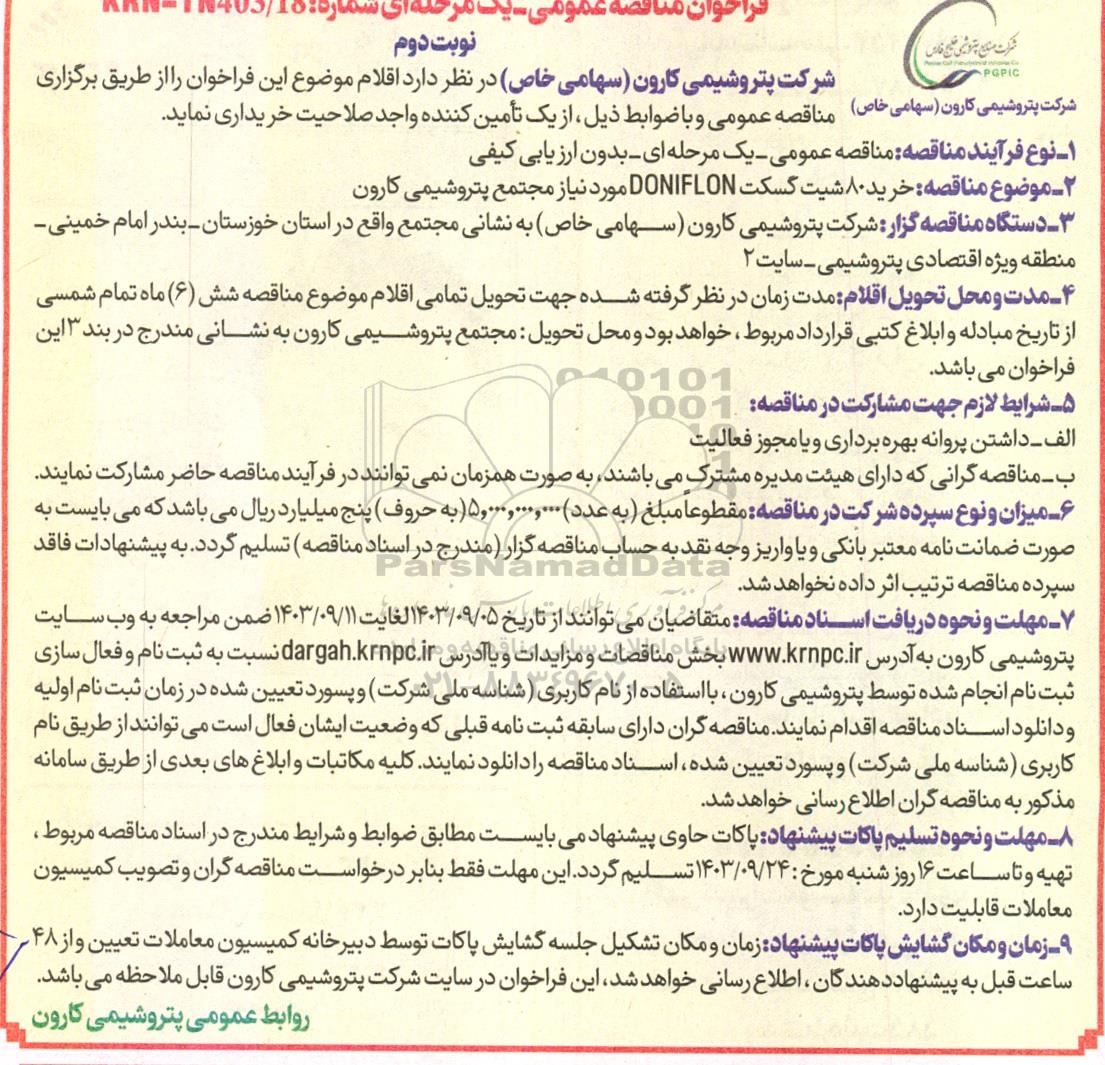 فراخوان مناقصه عمومی ـ یک مرحله‌ای شماره: KRN-TN403/18
نوبت دوم
شرکت صنایع پتروشیمی خلیج فارس
PGPIC
شرکت پتروشیمی کارون (سهامی خاص)
شرکت پتروشیمی کارون (سهامی خاص) در نظر دارد اقلام موضوع این فراخوان را از طریق برگزاری
مناقصه عمومی و با ضوابط ذیل، از یک تأمین کننده واجد صلاحیت خریداری نماید.
۱ـ نوع فرآیند مناقصه: مناقصه عمومی ـ یک مرحله‌ای ـ بدون ارزیابی کیفی
۲ـ موضوع مناقصه: خرید ۸۰ شیت گسکت DONIFLON مورد نیاز مجتمع پتروشیمی کارون
۳ـ دستگاه مناقصه گزار: شرکت پتروشیمی کارون (سهامی خاص) به نشانی مجتمع واقع در استان خوزستان ـ بندر امام خمینی ـ
منطقه ویژه اقتصادی پتروشیمی ـ سایت ۲
۴ـ مدت و محل تحویل اقلام: مدت زمان در نظر گرفته شده جهت تحویل تمامی اقلام موضوع مناقصه شش (۶) ماه تمام شمسی
از تاریخ مبادله و ابلاغ کتبی قرارداد مربوط، خواهد بود و محل تحویل: مجتمع پتروشیمی کارون به نشانی مندرج در بند ۳ این
فراخوان می باشد.
۵ـ شرایط لازم جهت مشارکت در مناقصه:
الف ـ داشتن پروانه بهره برداری و یا مجوز فعالیت
ب ـ مناقصه گرانی که دارای هیئت مدیره مشترک می باشند، به صورت همزمان نمی توانند در فرآیند مناقصه حاضر مشارکت نمایند.
۶ـ میزان و نوع سپرده شرکت در مناقصه: مقطوعاً مبلغ (به عدد) ۵,۰۰۰,۰۰۰,۰۰۰ (به حروف) پنج میلیارد ریال می باشد که می بایست به
صورت ضمانت نامه معتبر بانکی و یا واریز وجه نقد به حساب مناقصه گزار (مندرج در اسناد مناقصه) تسلیم گردد. به پیشنهادات فاقد
سپرده مناقصه ترتیب اثر داده نخواهد شد.
ParsNamadData
۷ـ مهلت و نحوه دریافت اسناد مناقصه: متقاضیان می توانند از تاریخ ۱۴۰۳/۰۹/۰۵ لغایت ۱۴۰۳/۰۹/۱۱ ضمن مراجعه به وب سایت
پتروشیمی کارون به آدرس www.krnpc.ir بخش مناقصات و مزایدات و یا آدرس dargah.krnpc.ir نسبت به ثبت نام و فعال سازی
ثبت نام انجام شده توسط پتروشیمی کارون، با استفاده از نام کاربری (شناسه ملی شرکت) و پسورد تعیین شده در زمان ثبت نام اولیه
و دانلود اسناد مناقصه اقدام نمایند. مناقصه گران دارای سابقه ثبت نامه قبلی که وضعیت ایشان فعال است می توانند از طریق نام
کاربری (شناسه ملی شرکت) و پسورد تعیین شده، اسناد مناقصه را دانلود نمایند. کلیه مکاتبات و ابلاغ های بعدی از طریق سامانه
مذکور به مناقصه گران اطلاع رسانی خواهد شد.
۸ـ مهلت و نحوه تسلیم پاکات پیشنهاد: پاکات حاوی پیشنهاد می بایست مطابق ضوابط و شرایط مندرج در اسناد مناقصه مربوط،
تهیه و تا ساعت ۱۶ روز شنبه مورخ: ۱۴۰۳/۰۹/۲۴ تسلیم گردد. این مهلت فقط بنابر درخواست مناقصه گران و تصویب کمیسیون
معاملات قابلیت دارد.
۹ـ زمان و مکان گشایش پاکات پیشنهاد: زمان و مکان تشکیل جلسه گشایش پاکات توسط دبیرخانه کمیسیون معاملات تعیین و از ۴۸
ساعت قبل به پیشنهاددهندگان، اطلاع رسانی خواهد شد، این فراخوان در سایت شرکت پتروشیمی کارون قابل ملاحظه می باشد.
روابط عمومی پتروشیمی کارون